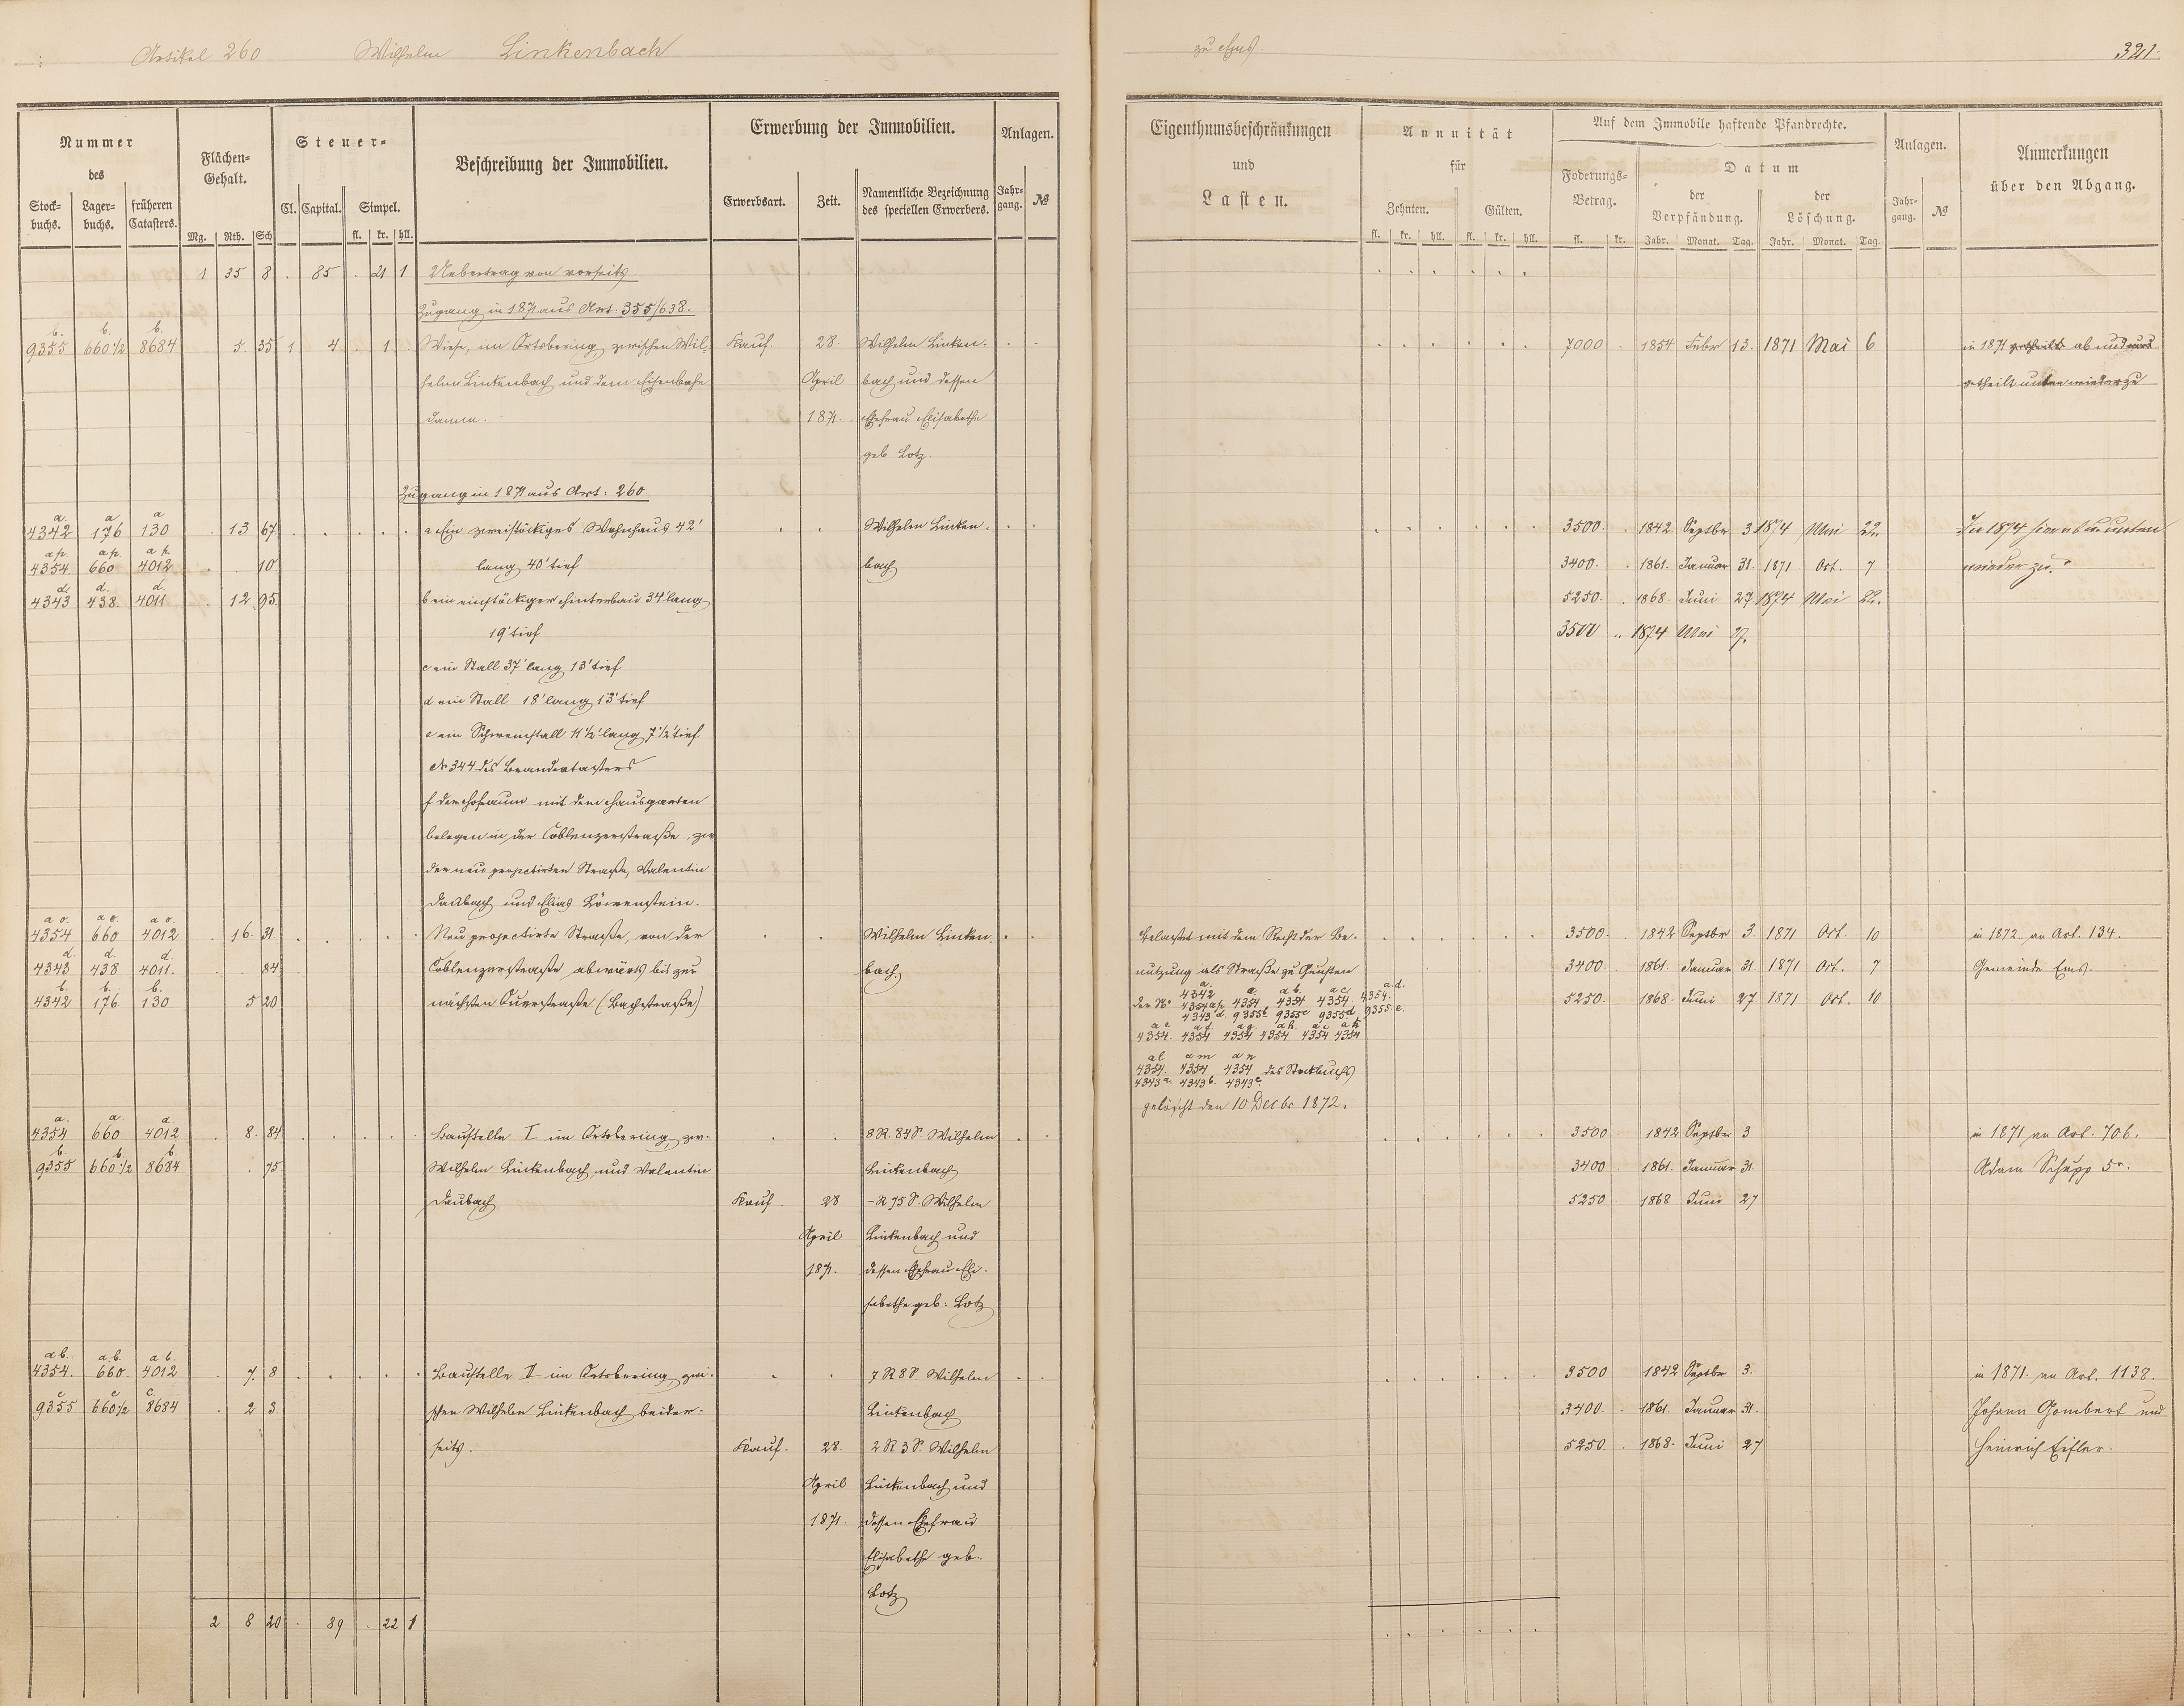 Artikel 260 Wilhelm Linkenbach
zu Ems.
321.
Nummer
des
Stock-
buchs.
Lager-
buchs.
früheren
Catasters.
Flächen-
Gehalt.
Mg. Rth. Sch
Steuer-
Cl. Capital. Simpel.
fl. kr. hll.
Beschreibung der Immobilien.
Erwerbung der Immobilien.
Erwerbsart. Zeit.
Namentliche Bezeichnung
des speciellen Erwerbers.
Anlagen.
Jahr-
gang. №
Eigenthumsbeschränkungen
und
Lasten.
Annuität
für
Zehnten. Gülten.
fl. kr. hll. fl. kr. hll.
Auf dem Immobile haftende Pfandrechte.
Foderungs-
Betrag.
fl. kr.
Datum
der
Verpfändung.
Jahr. Monat. Tag.
der
Löschung.
Jahr. Monat. Tag.
Anlagen.
Jahr-
gang. №
Anmerkungen
über den Abgang.
1 35 8 . 85 . 21 1 Uebertrag von vorseits
Zugang in 1871 aus Art: 355/638.
b. b. b.
9355 660½ 8684 5. 35 1 4 . 1 Wiese, im Ortsbering zwischen Wil- Kauf. 28. Wilhelm Linken- 7000 1854 Febr 13. 1871 Mai 6 in 1871 getheilt ab und
helm Linkenbach und dem Eisenbahn April bach und dessen getheilt unten wieder zu
damm. 1871. Ehefrau Elisabethe
geb Lotz.
Zugang in 1871 aus Art: 260.
a. a a
4342 176 130 13 67 a Ein zweistöckiges Wohnhaus 42' Wilhelm Linken- 3500. 1842 Septbr 3 1874 Mai 22. In 1874 hier ab u. unten
ap. ap. ap.
4354. 660 4012 10 lang 40' tief bach 3400. 1861. Januar 31. 1871 Oct. 7 wieder zu.
d. d. d.
4343 438. 4011 12 95 b ein einstöckiger Hinterbau 34' lang 5250. 1868. Juni 27 1874 Mai 22.
19' tief 3500 1874 Mai
c ein Stall 37' lang 13' tief
d ein Stall 18' lang 13' tief
e ein Schweinstall 11½' lang 7½' tief
No 344 des Brandcatasters
f der Hofraum mit dem Hausgarten
belegen in der Coblenzerstraße, zw
der neu projectirten Straße, Valentin
Daubach und Elias Löwenstein.
ao. ao. ao.
4354 660 4012 16. 31 Neu projectirte Straße, von der Wilhelm Linken- Belastet mit dem Recht der Be- 3500. 1842 Septbr 3. 1871 Oct. 10 in 1872 an Art. 134.
d. d. d.
4343 438 4011. 84 Coblenzerstraße abwärts bis zur bach nutzung als Straße zu Gunsten 3400 1861. Januar 31. 1871 Oct. 7 Gemeinde Ems.
b. b. b.
4342 176. 130 5 20 nächsten Querstraße (Bachstraße) 5250. 1868. Juni 27 1871 Oct. 10
a. a. ab. ac. ad.
der No 4342 4354ap. 4354 4354 4354 4354.
4343 d. 9355 b 9355 c 9355 d. 9355 e.
ae af ag. ah. ai ak
4354. 4354 4354 4354 4354 4354
al am an
4354. 4354 4354 des Stockbuchs
4343 a. 4343 b. 4343 c.
gelöscht den 10 Decbr 1872.
a. a. a.
4354 660 4012 8. 84 Baustelle I im Ortsbering, zw. 8 R. 84 S. Wilhelm 3500 1842 Septbr 3 in 1871 an Art. 706.
b. b. b.
9355 660½ 8684 75. Wilhelm Linkenbach und Valentin Linkenbach 3400 1861. Januar 31. Adam Schupp 5r.
Daubach Kauf 28 – R 75 S. Wilhelm 5250 1868 Juni 27
April Linkenbach und
1871. dessen Ehefrau Eli-
sabethe geb: Lotz
ab. ab. ab.
4354. 660. 4012 7. 8 Baustelle II im Ortsbering, zwi- 7 R 8 S Wilhelm 3500 1842 Septbr 3. in 1871. an Art. 1138.
c c c.
9355 660½ 8684 2 3 schen Wilhelm Linkenbach beider- Linkenbach 3400. 1861. Januar 31. Johann Gombert und
seits. Kauf. 28. 2 R 3 S. Wilhelm 5250. 1868. Juni 27 Heinrich Eisler.
April Linkenbach und
1871. dessen Ehefrau
Elisabethe geb.
Lotz
2 8 20 . 89 . 22 1